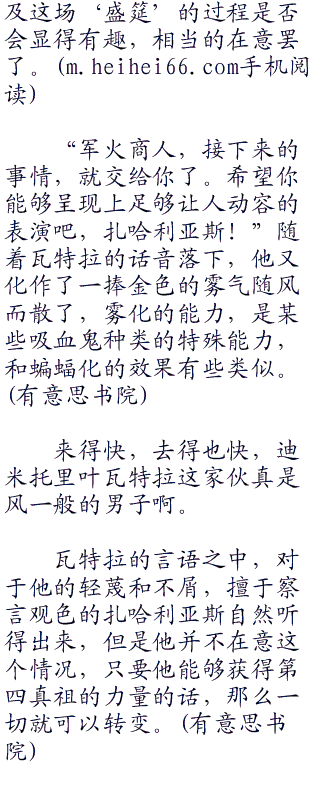 及这场‘盛筵’的过程是否
会显得有趣，相当的在意罢
了。(m.heihei66.com手机阅
读)
“军火商人，接下来的
事情，就交给你了。希望你
能够呈现上足够让人动容的
表演吧，扎哈利亚斯！”随
着瓦特拉的话音落下，他又
化作了一捧金色的雾气随风
而散了，雾化的能力，是某
些吸血鬼种类的特殊能力，
和蝙蝠化的效果有些类似。
(有意思书院)
来得快，去得也快，迪
米托里叶瓦特拉这家伙真是
风一般的男子啊。
瓦特拉的言语之中，对
于他的轻蔑和不屑，擅于察
言观色的扎哈利亚斯自然听
得出来，但是他并不在意这
个情况，只要他能够获得第
四真祖的力量的话，那么一
切就可以转变。(有意思书
院)